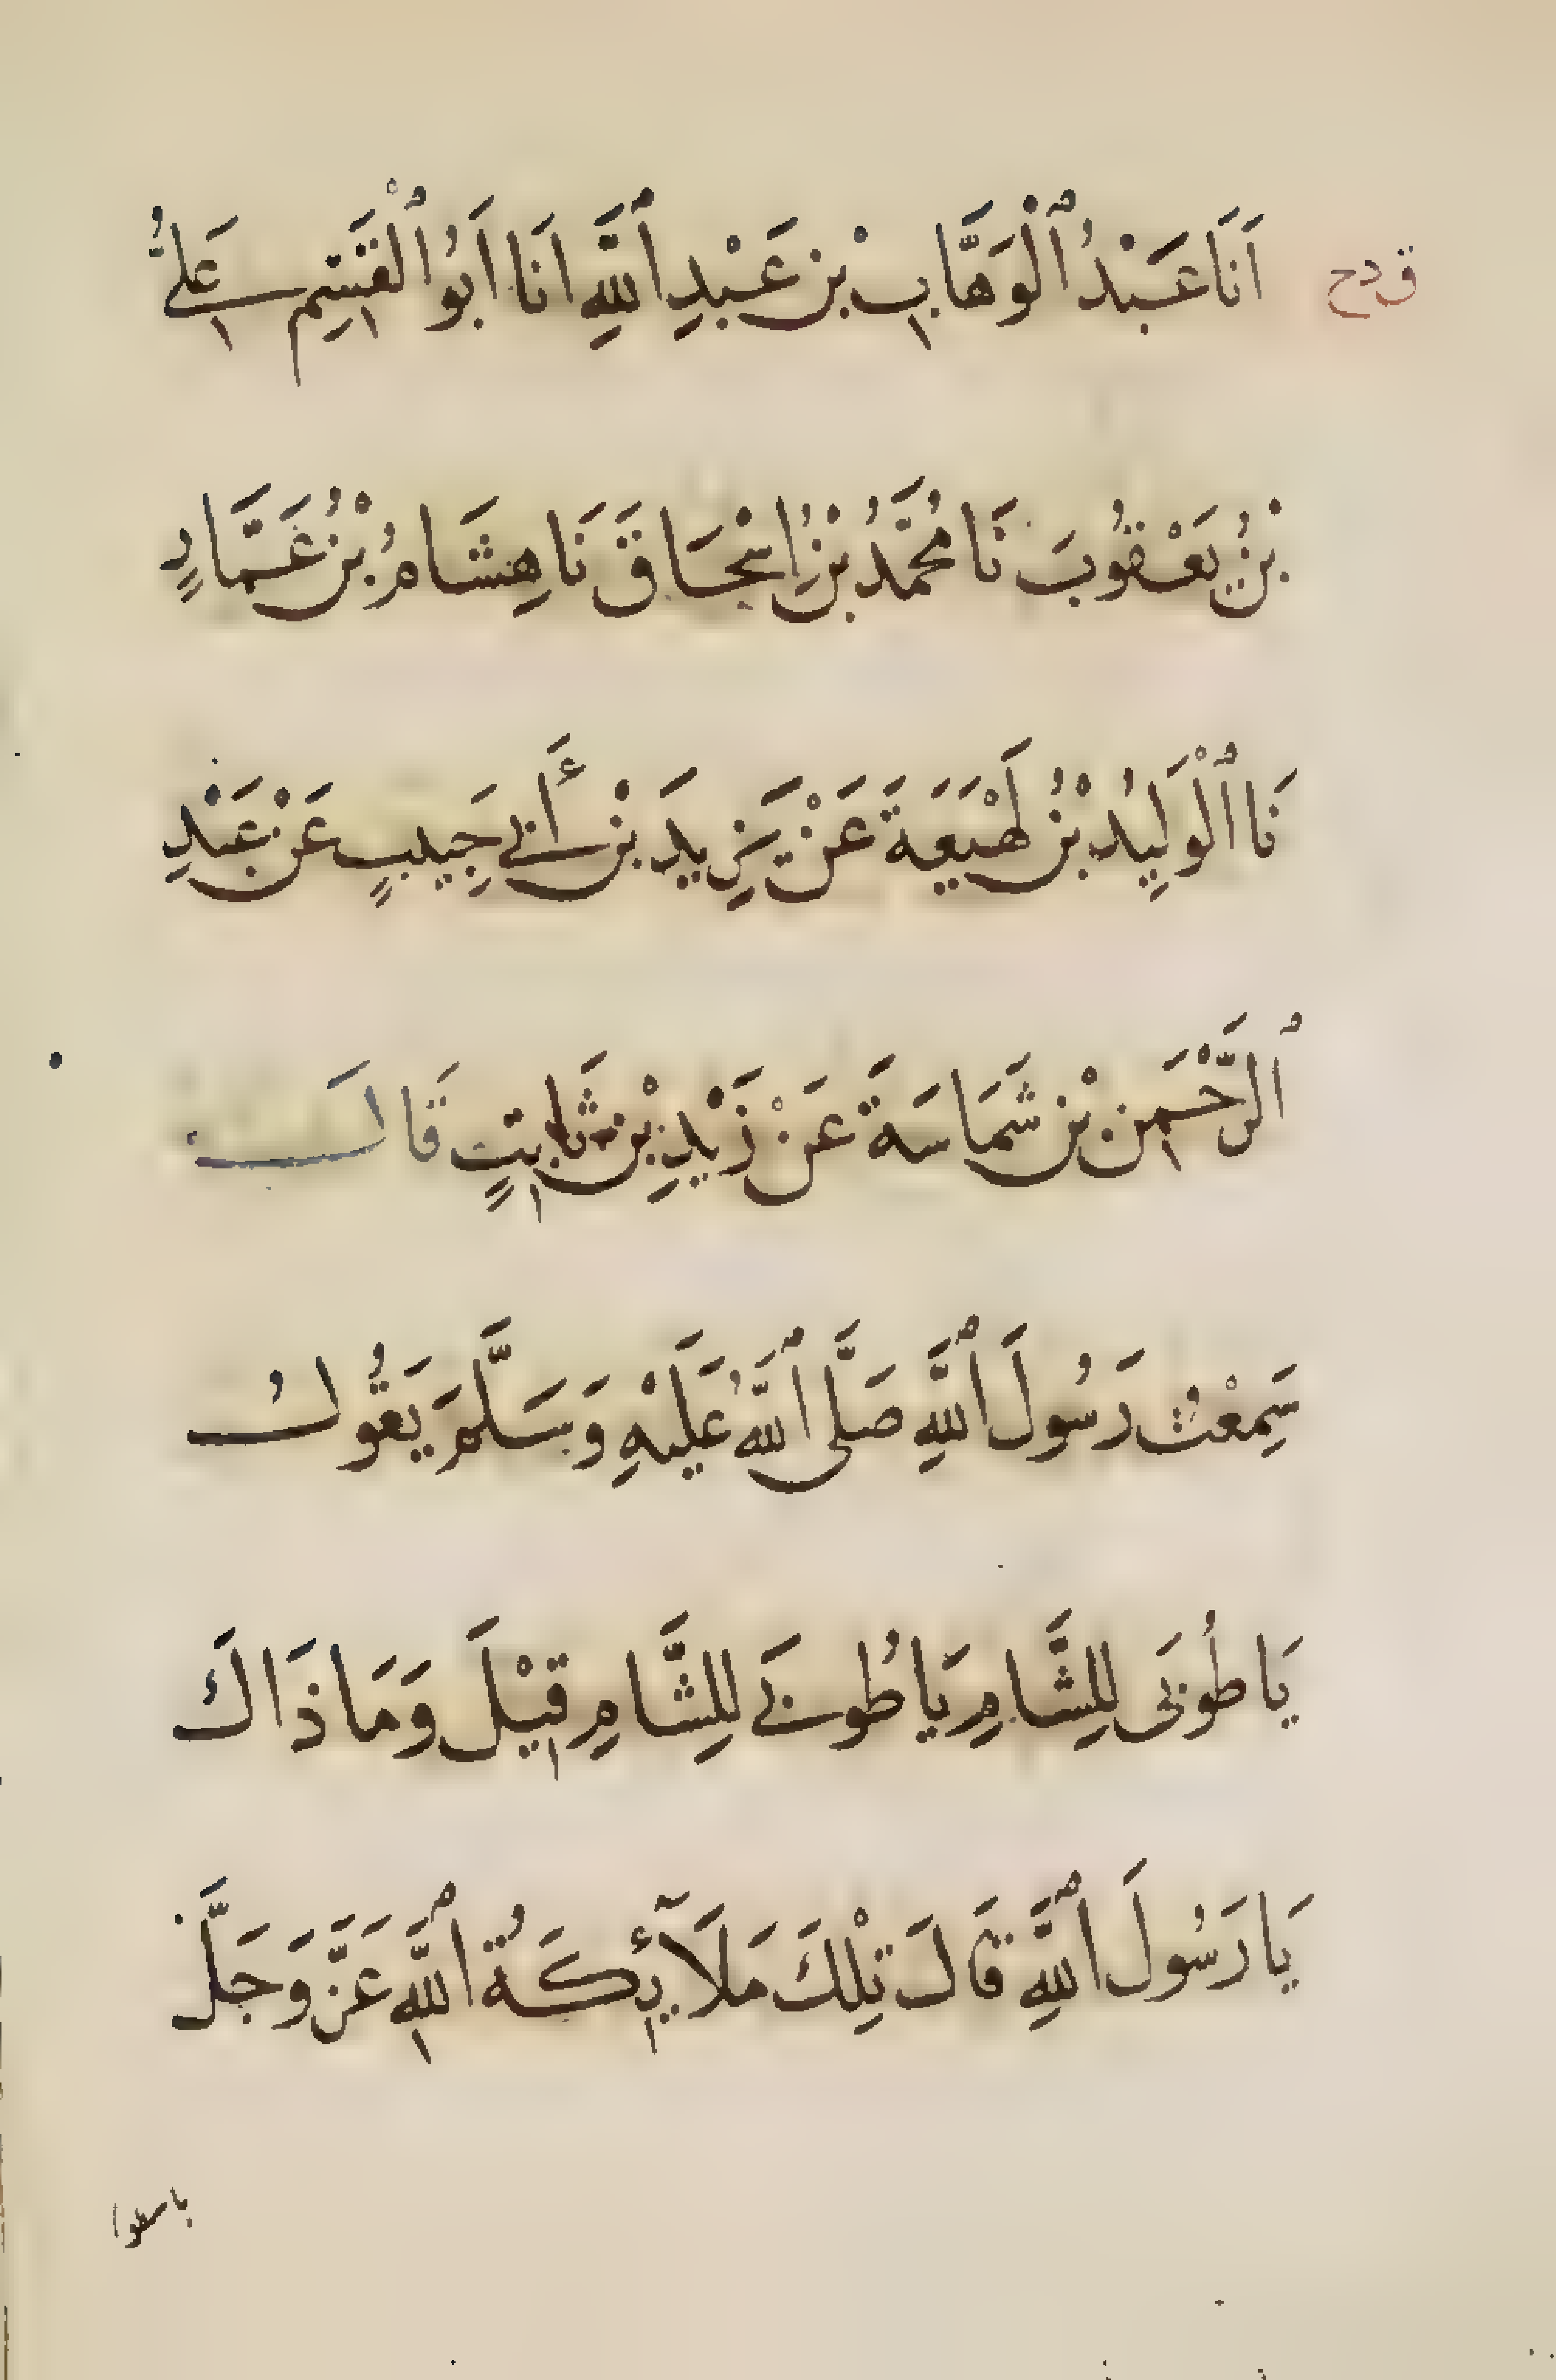 اَنَا عَبْدُ ٱلْوَهَّابِ بْنِ عَبْدِ ٱللَّهِ اَنَا اَبُو ٱلْقٰسِمِ عَلِيُّ
بْنُ يَعْقُوبَ نَا مُحَمَّدُ بْنُ اِسْحَاقَ نَا هِشَامُ بْنُ عَمَّارٍ
نَا ٱلْوَلِيدُ بْنُ لَهْيَعَةَ عَنْ يَزِيدَ بْنِ أَبِي حَبِيبٍ عَنْ عَبْدِ
ٱلرَّحْمٰنِ بْنِ شَمَاسَةَ عَنْ زَيْدِ بْنِ ثَابِتٍ قَالَ
سَمِعْتُ رَسُولَ ٱللَّهِ صَلَّى ٱللَّهُ عَلَيْهِ وَسَلَّمَ يَقُولُ
يَا طُوبَى لِلشَّامِ يَا طُوبَى لِلشَّامِ قِيْلَ وَمَا ذَاكَ
يَا رَسُولَ ٱللَّهِ قَالَ تِلْكَ مَلَآئِكَةُ ٱللَّهِ عَزَّ وَجَلَّ
باسطوا